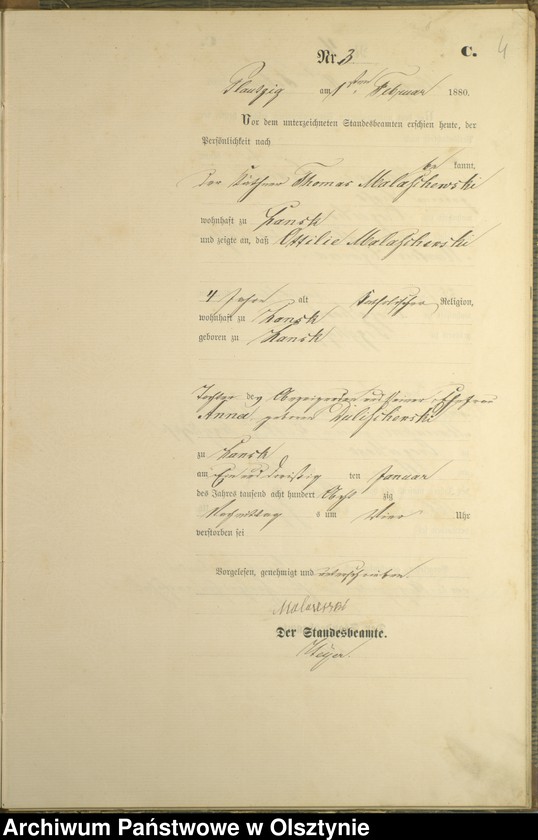 4
Nr. 3. C.
Plautzig am 1ten Februar 1880.
Vor dem unterzeichneten Standesbeamten erschien heute, der
Persönlichkeit nach
be kannt,
der Käthner Thomas Malaschewski
wohnhaft zu Lansk
und zeigte an, daß Ottilie Malaschewski
4 Jahre alt katholischer Religion,
wohnhaft zu Lansk
geboren zu Lansk
Tochter des Anzeigenden und seiner Ehefrau
Anna geborene
zu Lansk
am Ein und dreißig ten Januar
des Jahres tausend acht hundert Acht zig
Nachmittag s um Uhr
verstorben sei
Vorgelesen, genehmigt und unterschrieben.
Der Standesbeamte.
Archiwum Państwowe w Olsztynie